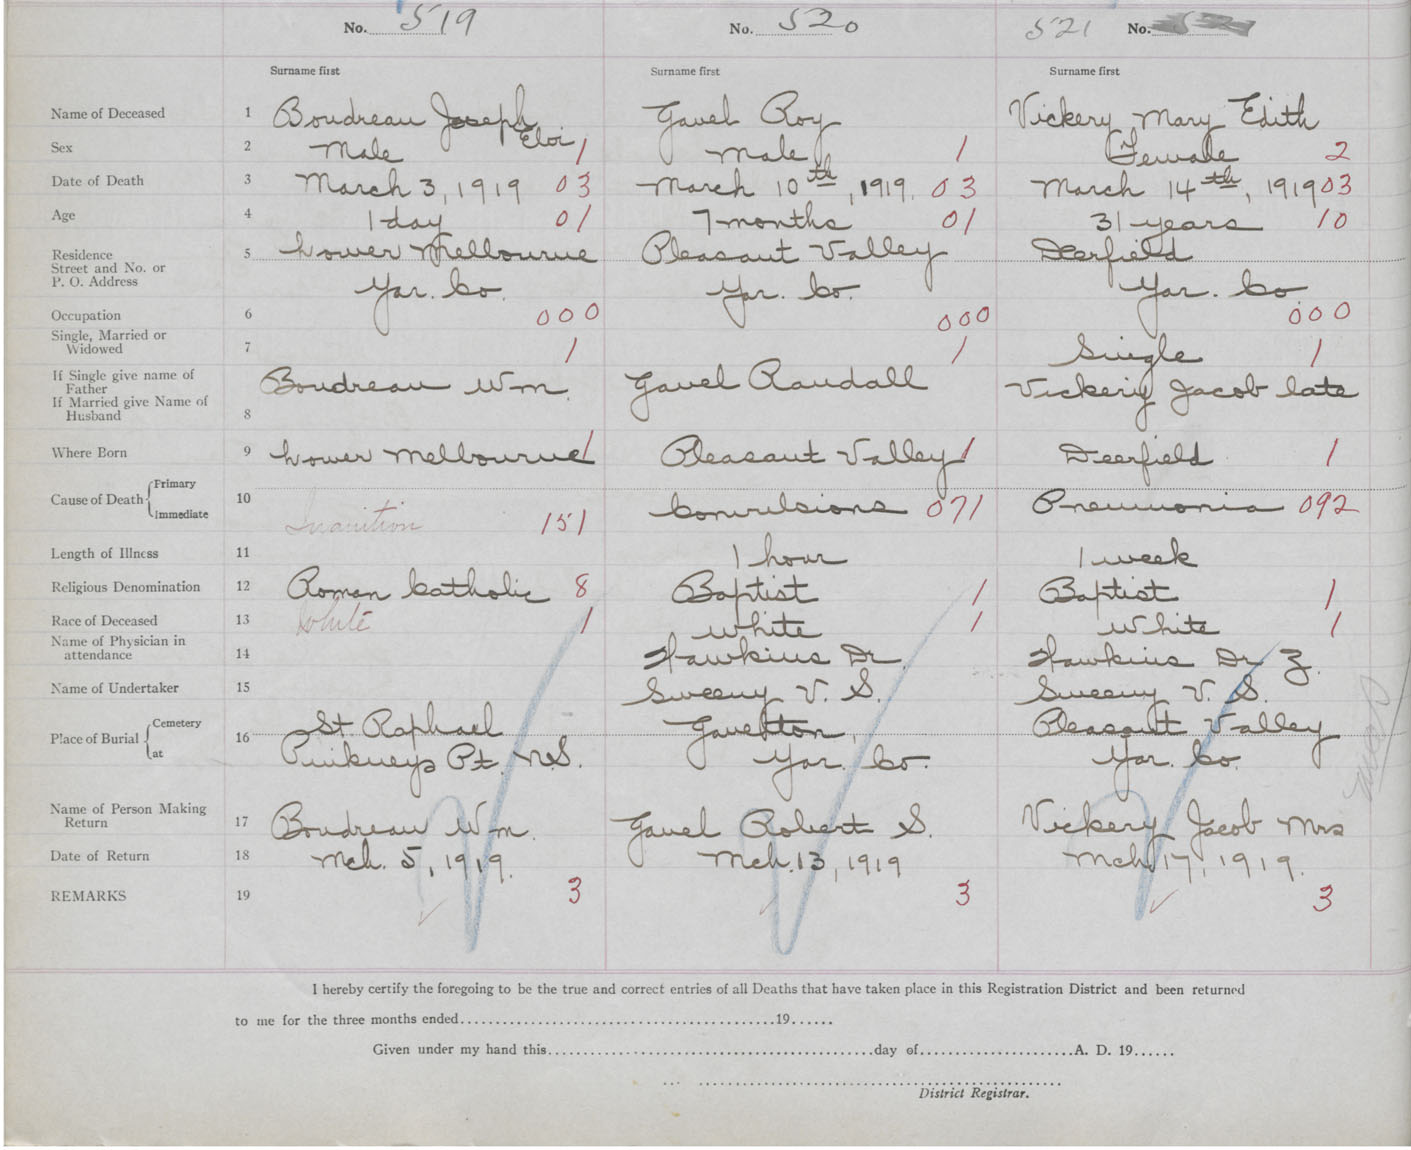 No. 519 No. 520 521 No.
Surname first Surname first Surname first
Name of Deceased 1 Boudreau Joseph Eloi Gavel Roy Vickery Mary Edith
Sex 2 Male 1 Male 1 Female 2
Date of Death 3 March 3, 1919 03 March 10th, 1919. 03 March 14th, 1919 03
Age 4 1 day 01 7 months 01 31 years 10
Residence
Street and No. or 5 Lower Melbourne Pleasant Valley Deerfield
P. O. Address Yar. Co. Yar. Co. Yar. Co.
Occupation 6 000 000 000
Single, Married or
Widowed 7 1 1 Single 1
If Single give name of
Father Boudreau Wm. Gavel Randall Vickery Jacob late
If Married give Name of
Husband 8
Where Born 9 Lower Melbourne 1 Pleasant Valley 1 Deerfield 1
Cause of Death Primary
Immediate 10 Inanition 151 Convulsions 071 Pneumonia 092
Length of Illness 11 1 hour 1 week
Religious Denomination 12 Roman Catholic 8 Baptist 1 Baptist 1
Race of Deceased 13 White 1 White 1 White 1
Name of Physician in
attendance 14 Hawkins Dr. Hawkins Dr Z.
Name of Undertaker 15 Sweeny V. S. Sweeny V. S.
Place of Burial Cemetery 16 St. Raphael Gavelton, Pleasant Valley
at Pinkneys Pt. N.S. Yar. Co. Yar. Co.
Name of Person Making
Return 17 Boudreau Wm. Gavel Robert S. Vickery Jacob Mrs
Date of Return 18 Mch. 5, 1919. Mch. 13, 1919 Mch. 17, 1919.
REMARKS 19 3 3 3
I hereby certify the foregoing to be the true and correct entries of all Deaths that have taken place in this Registration District and been returned
to me for the three months ended........................................19......
Given under my hand this..........................................day of....................A. D. 19......
District Registrar.